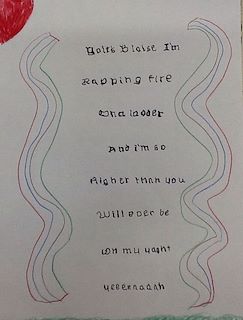 Yolts Blaise I'm
Rapping fire
Una ladder
And I'm so
Higher than you
Will ever be
On my yaght
yeeernaanh